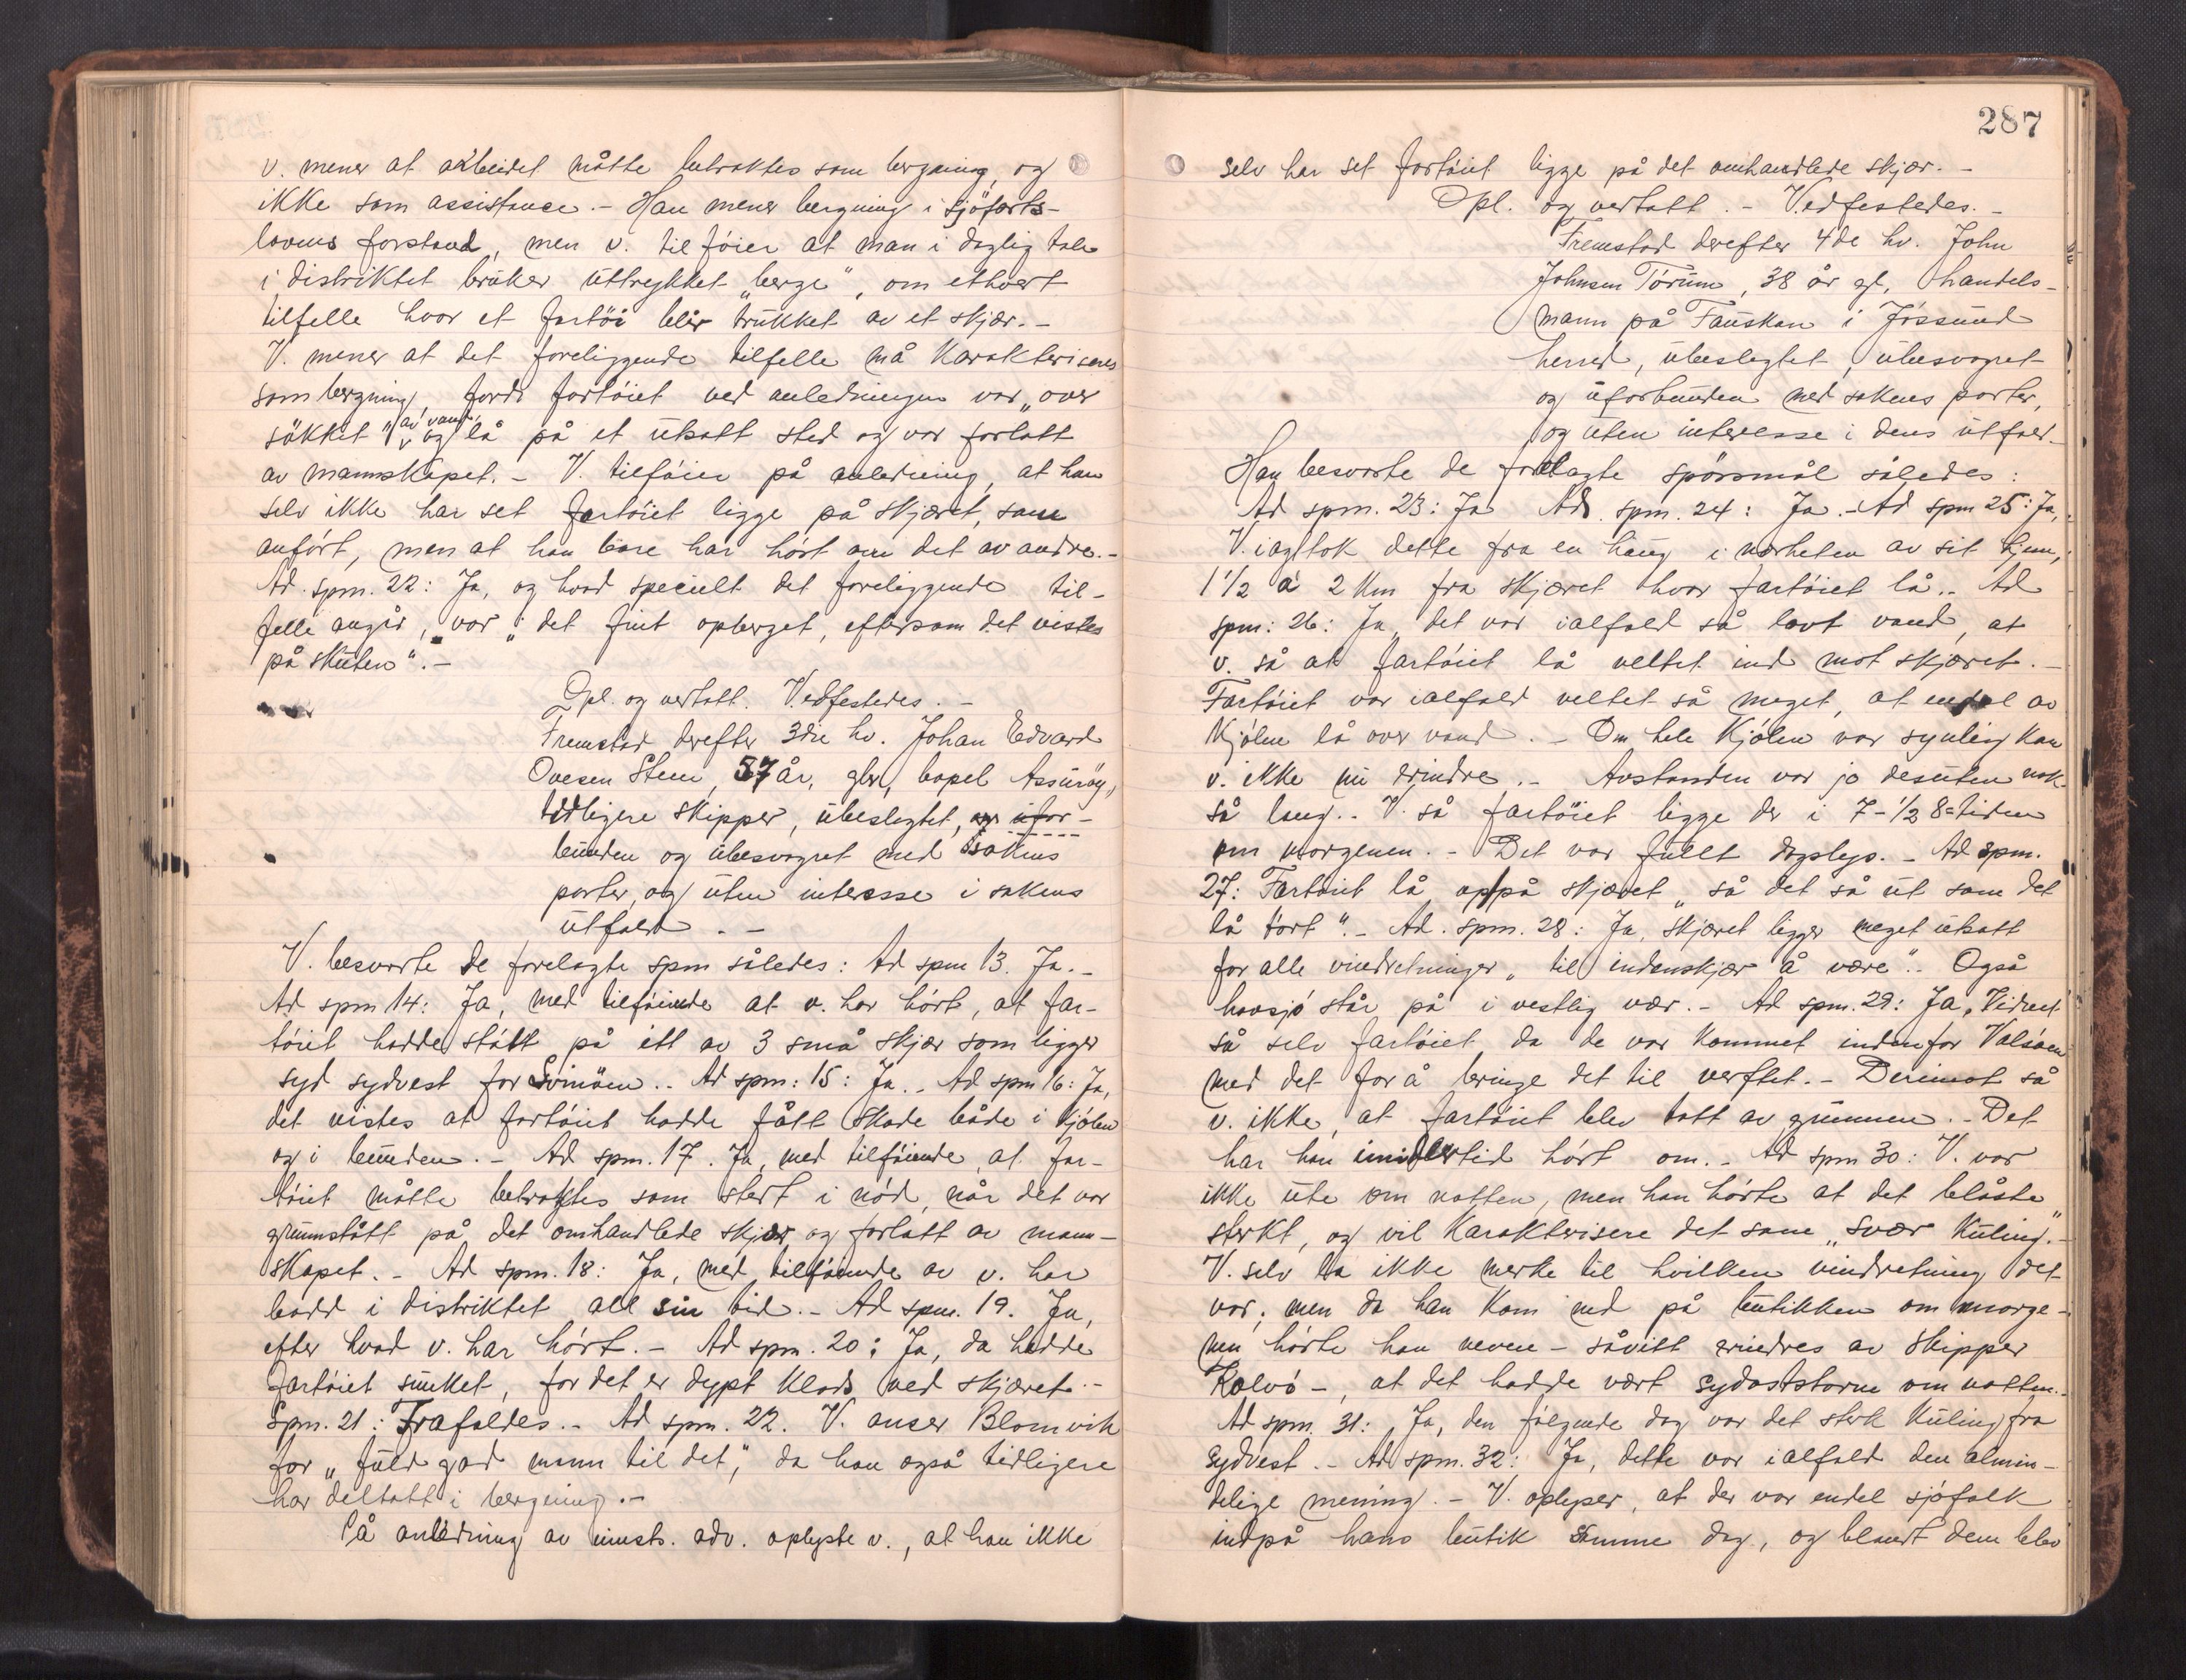 v. mener at arbeidet måtte betraktes som bergning og
ikke som assistance. - Han mener bergning i sjöfarts-
lovens forstand, men v. tilföier at man i daglig tale
i distriktet bruker uttrykket „berge“, om ethvert
tilfelle hvor et fartöi blir trukket av et skjær. -
V. mener at det foreliggende tilfelle må karakteriseres
som bergning, fordi fartöiet ved anledningen var „over
sökket“ av vand, og lå på et utsatt sted og var forlatt
av mannskapet. - V. tilföier på anledning, at han
selv ikke har set fartöiet ligge på skjæret, som
anfört, men at han bare har hört om det av andre. -
Ad. spm. 22: Ja, og hvad specielt det foreliggende til-
felle angår, „var det fint opberget, eftersom det vistes
på skuten“. -
Opl. og vertatt. Vedfestedes. -
Fremstod derefter 3die hv. Johan Edvard
Ovesen Stene, 57 år, glm, bopel Assuröy,
tidligere skipper, ubeslegtet, ufor-
bunden og ubesvogret med sakens
parter, og uten interesse i sakens
utfald. -
V. besvarte de forelagte spm således: Ad spm 13. Ja. -
Ad spm 14: Ja, med tilföiende at v. har hört, at far-
töiet hadde stått på ett av 3 små skjær som ligger
syd sydvest for Svinöen. - Ad spm: 15: Ja. - Ad spm 16: Ja,
det vistes at fartöiet hadde fått skade både i kjölen
og i bunden. - Ad spm. 17. Ja, med tilföiende, at far-
töiet måtte betraktes som stert i nöd, når det var
grunnstått på det omhandlede skjær og forlatt av mann-
skapet. - Ad spm. 18: Ja, med tilföiende av v. har
bodd i distriktet all sin tid. - Ad spm. 19. Ja,
efter hvad v. har hört. - Ad spm. 20: Ja, da hadde
fartöiet sunket, for det er dypt klods ved skjæret. -
Spm. 21: Frafaldes. - Ad spm. 22. V. anser Blomvik
for „fuld god mann til det“, da han også tidligere
har deltatt i bergning. -
På anledning av innst. adv. oplyste v., at han ikke
287
selv har set fartöiet ligge på det omhandlede skjær. -
Opl. og vertatt. - Vedfestedes. -
Fremstod derefter 4de hv. John
Johnsen Törum, 38 år gl, handels-
mann på Fauskan i Jössund
herred, ubeslegtet, ubesvogret
og uforbunden med sakens parter,
og uten interesse i dens utfald. -
Han besvarte de forelagte spörsmål således:
Ad spm. 23: Ja Ad. spm. 24: Ja. - Ad spm 25: Ja,
V. iagttok dette fra en haug i nærheten av sit hjem,
1 1/2 à 2 km fra skjæret hvor fartöiet lå. - Ad
spm: 26: Ja, det var ialfald så lavt vand, at
v. så at fartöiet lå veltet ind mot skjæret. -
Fartöiet var ialfald veltet så meget, at endel av
kjölen lå over vand. - Om hele kjölen var synlig kan
v. ikke nu erindre. - Avstanden var jo desuten nok-
så lang. - V. så fartöiet ligge der i 7-1/2 8-tiden
om morgenen. - Det var fullt dagslys. - Ad spm.
27: Fartöiet lå oppå skjæret „så det så ut som det
lå tört“. - Ad. spm. 28: Ja, skjæret ligger meget utsatt
for alle vindretninger „til indenskjær å være“. - Også
havsjö står på i vestlig vær. - Ad spm. 29: Ja, Vidnet
så selv fartöiet da de var kommet indenfor Valsöen
med det for å bringe det til verftet. - Derimot så
v. ikke, at fartöiet blev tatt av grunnen. - Det
har han imidlertid hört om. - Ad spm 30: V. var
ikke ute om natten, men han hörte at det blåste
sterkt, og vil karakterisere det som „svær kuling“. -
V. selv la ikke merke til hvilken vindretning det
var, men da han kom ned på butikken om morge-
nen hörte han nevne - såvitt erindres av skipper
Kolvö -, at det hadde vært sydoststorm om natten. -
Ad spm. 31: Ja, den fölgende dag var det sterk kuling fra
sydvest. - Ad spm. 32: Ja, dette var ialfald den almin-
delige mening. - V. oplyser, at der var endel sjöfolk
indpå hans butik samme dag, og blandt dem blev